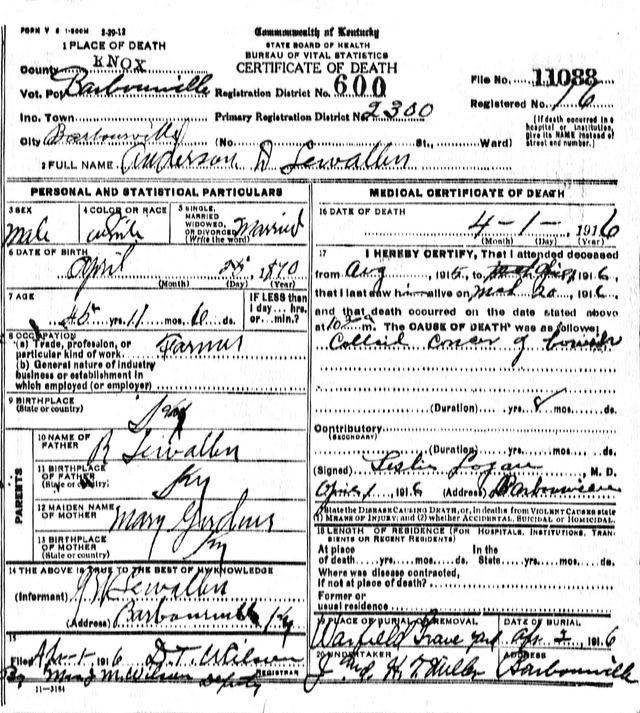 FORM V S 1-500M 3-29-12
Commonwealth of Kentucky
STATE BOARD OF HEALTH
BUREAU OF VITAL STATISTICS
CERTIFICATE OF DEATH
1 PLACE OF DEATH
County KNOX
Vot. Pct Barbourville
Registration District No. 600
File No. 11088
Inc. Town
Primary Registration District No. 2300
Registered No. 16
City Barbourville (No. St., Ward)
(If death occurred in a hospital or institution, give its NAME instead of street and number.)
2 FULL NAME Anderson D Lewallen
PERSONAL AND STATISTICAL PARTICULARS
3 SEX
Male
4 COLOR OR RACE
White
5 SINGLE, MARRIED WIDOWED, OR DIVORCED (Write the word)
Married
6 DATE OF BIRTH
April 25, 1870
(Month) (Day) (Year)
7 AGE
45 yrs. 11 mos. 6 ds.
IF LESS than 1 day... hrs. or... min.?
8 OCCUPATION
(a) Trade, profession, or particular kind of work
Farmer
(b) General nature of industry business or establishment in which employed (or employer)
9 BIRTHPLACE
(State or country)
Ky
PARENTS
10 NAME OF FATHER
B Lewallen
11 BIRTHPLACE OF FATHER
(State or country)
Ky
12 MAIDEN NAME OF MOTHER
Mary
13 BIRTHPLACE OF MOTHER
(State or country)
Ky
14 THE ABOVE IS TRUE TO THE BEST OF MY KNOWLEDGE
(Informant) Lewallen
(Address) Barbourville Ky
15
Filed Apr 1 1916 D.T. Wilson
REGISTRAR
By M. Wilson Deputy
11-3184
MEDICAL CERTIFICATE OF DEATH
16 DATE OF DEATH
4-1-, 1916
(Month) (Day) (Year)
17 I HEREBY CERTIFY, That I attended deceased
from Aug, 1915, to, 1916,
that I last saw him alive on Mch 20, 1916
and that death occurred on the date stated above
at 10 m. The CAUSE OF DEATH was as follows:
cancer of bowels
(Duration) yrs. 8 mos. ds.
Contributory
(SECONDARY)
(Duration) yrs. mos. ds.
(Signed) Leslie Logan, M. D.
April 1, 1916 (Address) Barbourville
State the DISEASE CAUSING DEATH, or, in deaths from VIOLENT CAUSES state (1) MEANS OF INJURY; and (2) whether ACCIDENTAL, SUICIDAL or HOMICIDAL.
18 LENGTH OF RESIDENCE (FOR HOSPITALS, INSTITUTIONS, TRANSIENTS OR RECENT RESIDENTS)
At place of death yrs. mos. ds. In the State, yrs. mos. ds.
Where was disease contracted, If not at place of death?
Former or usual residence
19 PLACE OF BURIAL OR REMOVAL
Warfield Grave yard
DATE OF BURIAL
Apr. 2, 1916
20 UNDERTAKER
ADDRESS
Barbourville